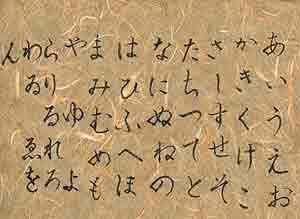 あいうえお
かきくけこ
さしすせそ
たちつてと
なにぬねの
はひふへほ
まみむめも
やゆよ
らりるれろ
わゐゑを
ん